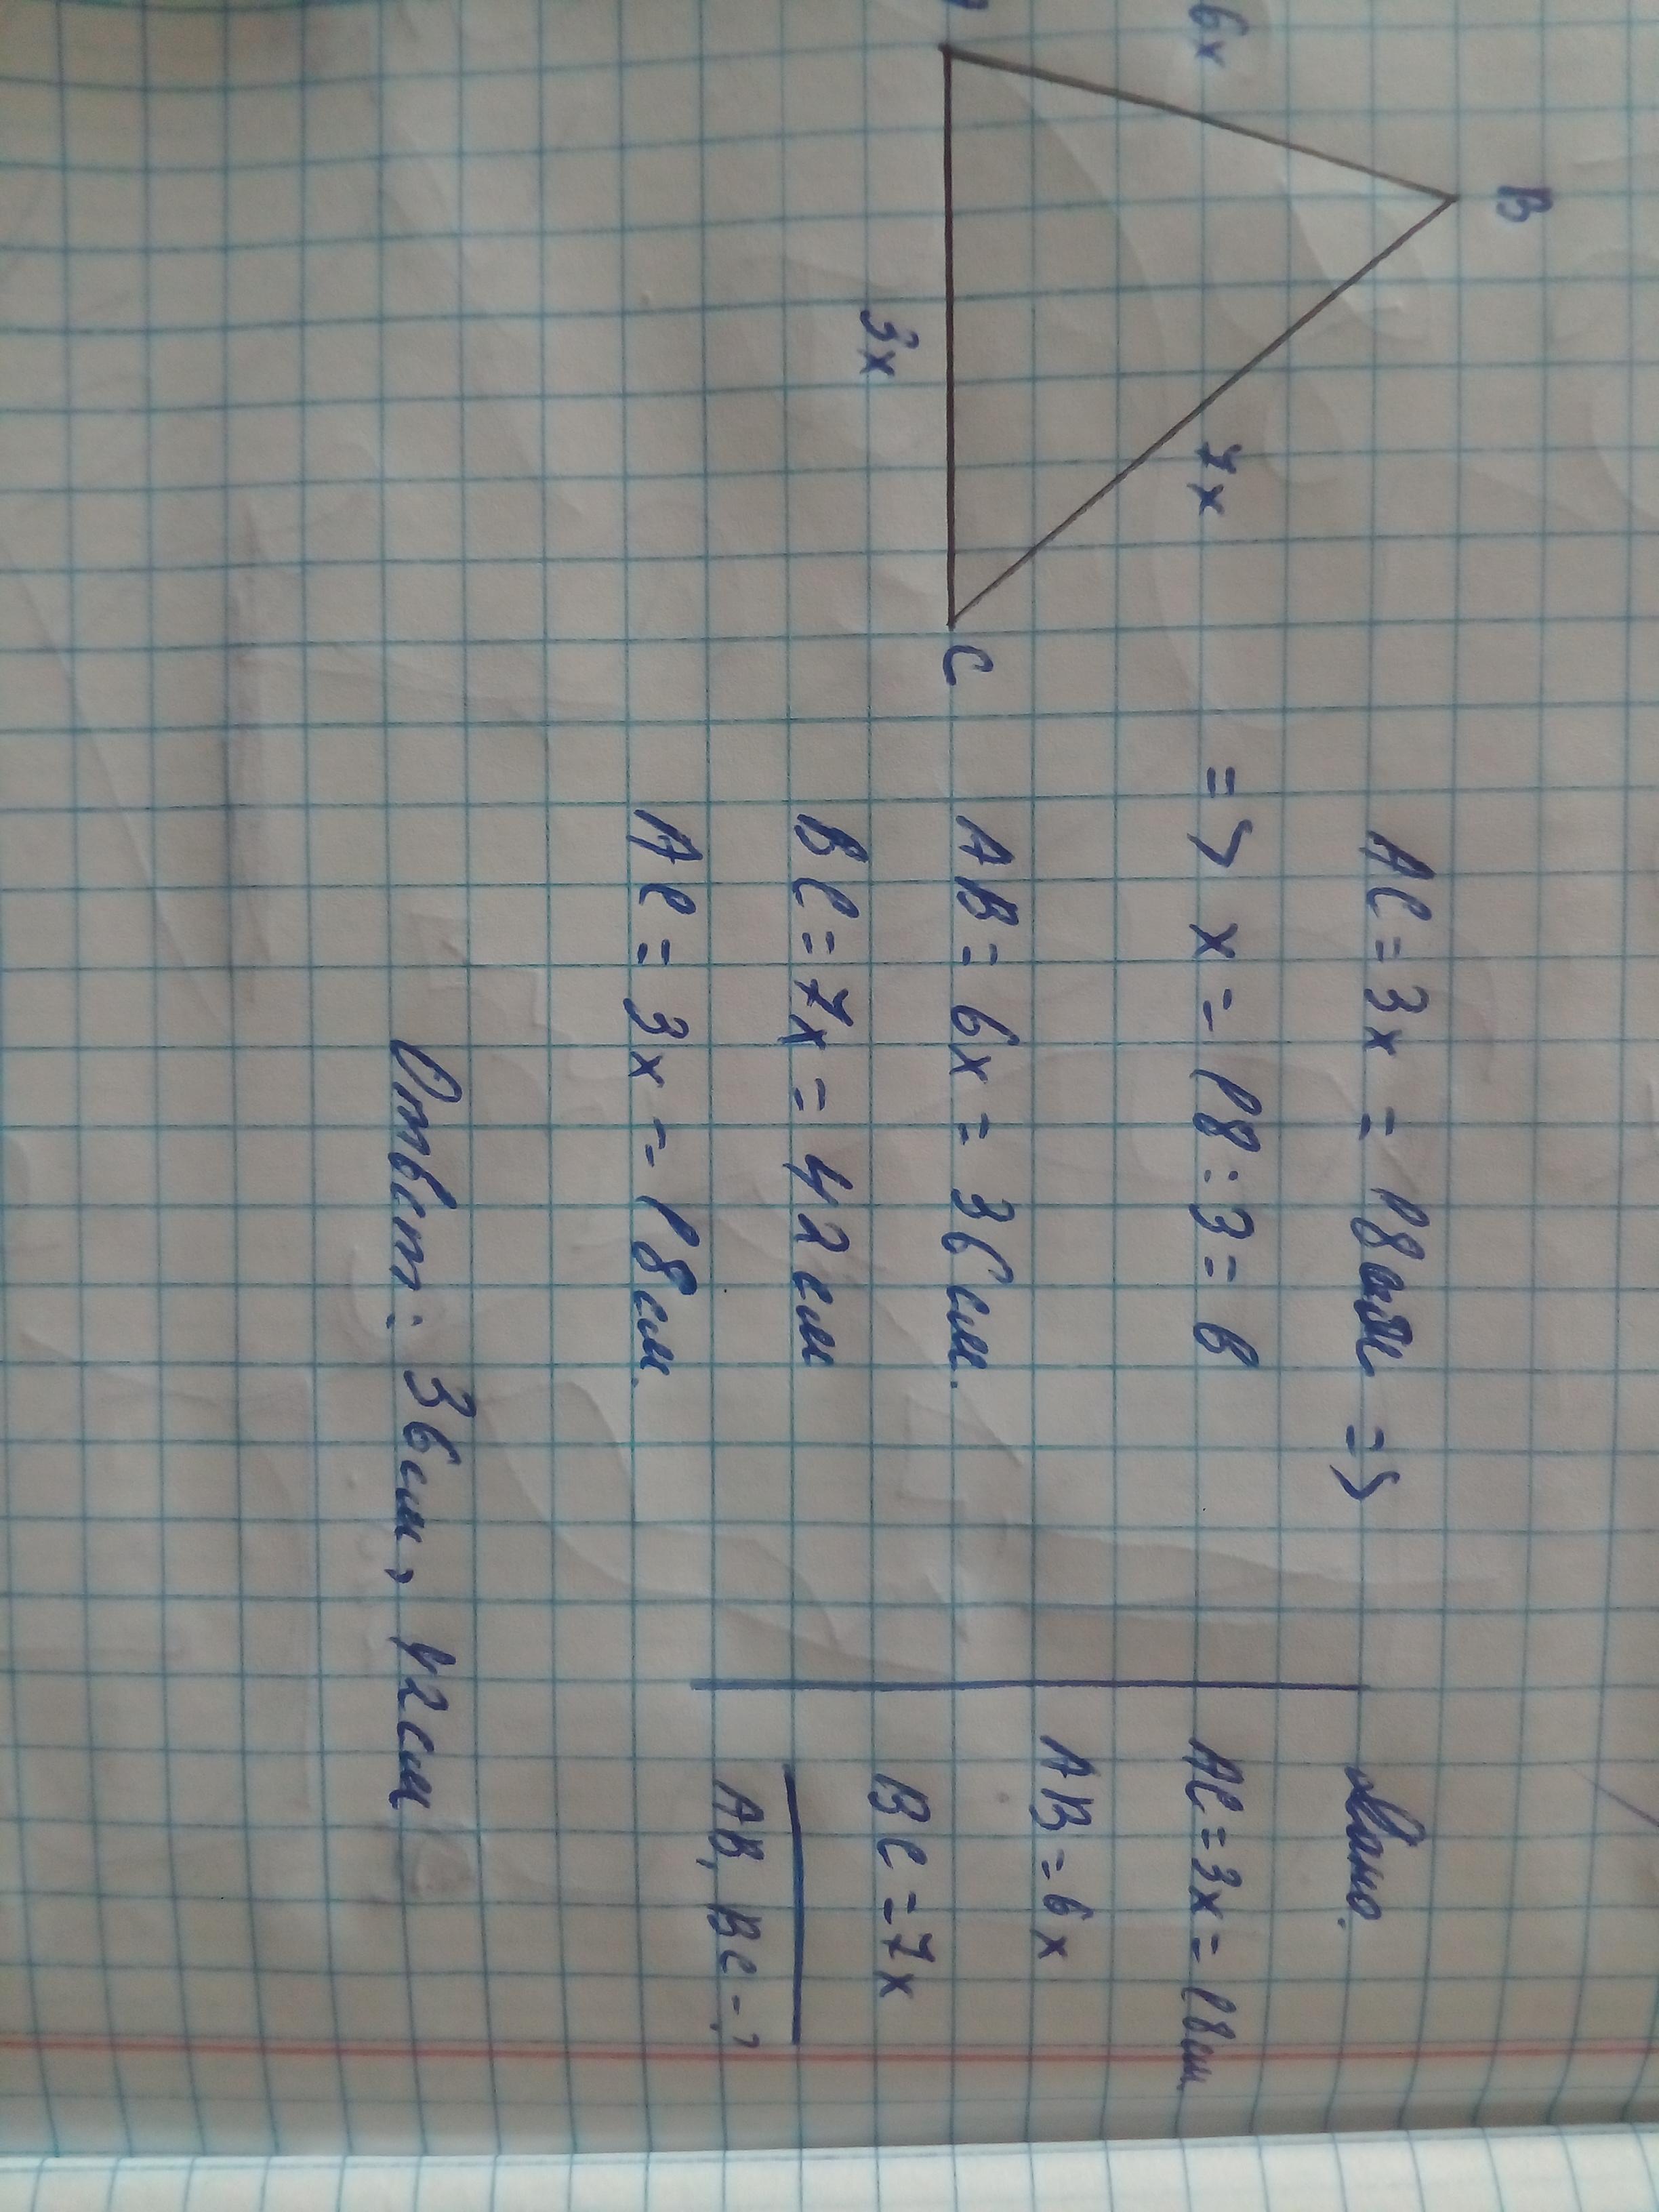 B
6x
7x
3x
C
AC = 3x = 18см =>
=> x = 18 : 3 = 6
AB = 6x = 36см.
BC = 7x = 42см
AC = 3x = 18см.
Ответ: 36см, 42см
Дано.
AC = 3x = 18см.
AB = 6x
BC = 7x
AB, BC - ?